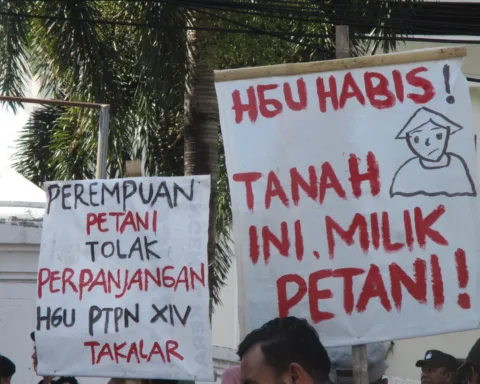 PEREMPUAN
PETANI
TOLAK
PERPANJANGAN
HGU PTPN XIV
TAKALAR
HGU HABIS!
TANAH
INI, MILIK
PETANI!